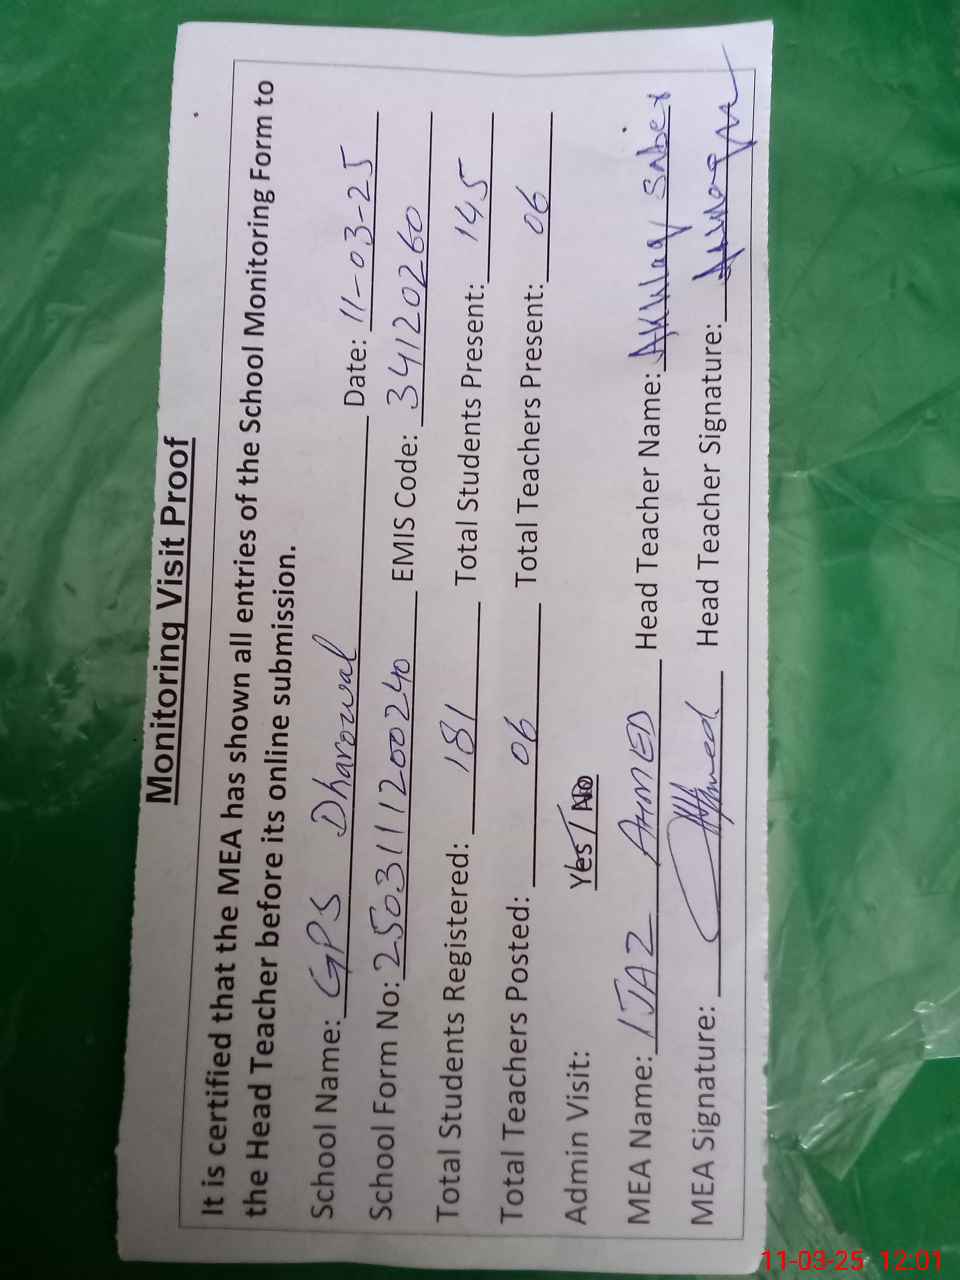 Monitoring Visit Proof
It is certified that the MEA has shown all entries of the School Monitoring Form to
the Head Teacher before its online submission.
School Name: GPS Dharowal Date: 11-03-25
School Form No: 2503111200240 EMIS Code: 34120260
Total Students Registered: 181 Total Students Present: 145
Total Teachers Posted: 06 Total Teachers Present: 06
Admin Visit: Yes / No
MEA Name: IJAZ AHMED Head Teacher Name: Akhlaq Saber
MEA Signature: Head Teacher Signature:
11-03-25 12:01